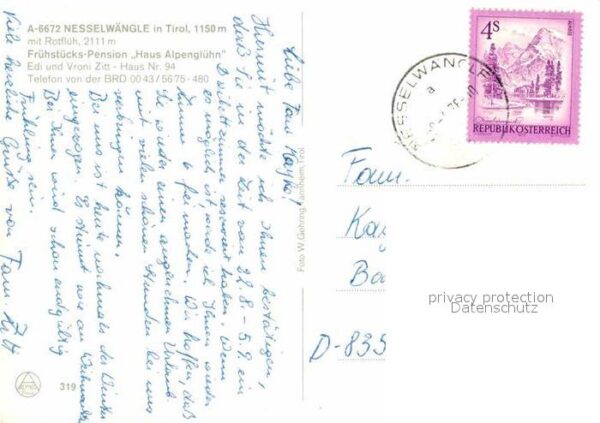 A-6672 NESSELWÄNGLE in Tirol, 1150 m
mit Rotflüh, 2111 m
Frühstücks-Pension „Haus Alpenglühn"
Edi und Vroni Zitt - Haus Nr. 94
Telefon von der BRD 0043/5675-480
Liebe Fam.
Hiermit möchte ich Ihnen bestätigen,
daß Sie in der Zeit vom 22.8 - 5.9. ein
Dreibettzimmer reserviert haben. Wenn
es möglich ist, werde ich Ihnen wieder
Zimmer 6 frei machen. Wir hoffen, daß
Sie wieder einen angenehmen Urlaub
mit vielen schönen Stunden bei uns
verbringen können.
Bei uns ist heute nochmals der Winter
eingezogen. Es stürmt wie an Weihnachten
Bei Ihnen wird schon endgültig
Frühling sein.
Viele herzliche Grüße von Fam. Zitt
319
Foto W. Gehring, Tannheim, Tirol
NESSELWÄNGLE
4S
REPUBLIK ÖSTERREICH
Fam.
Ka
Ba
D-835
privacy protection
Datenschutz